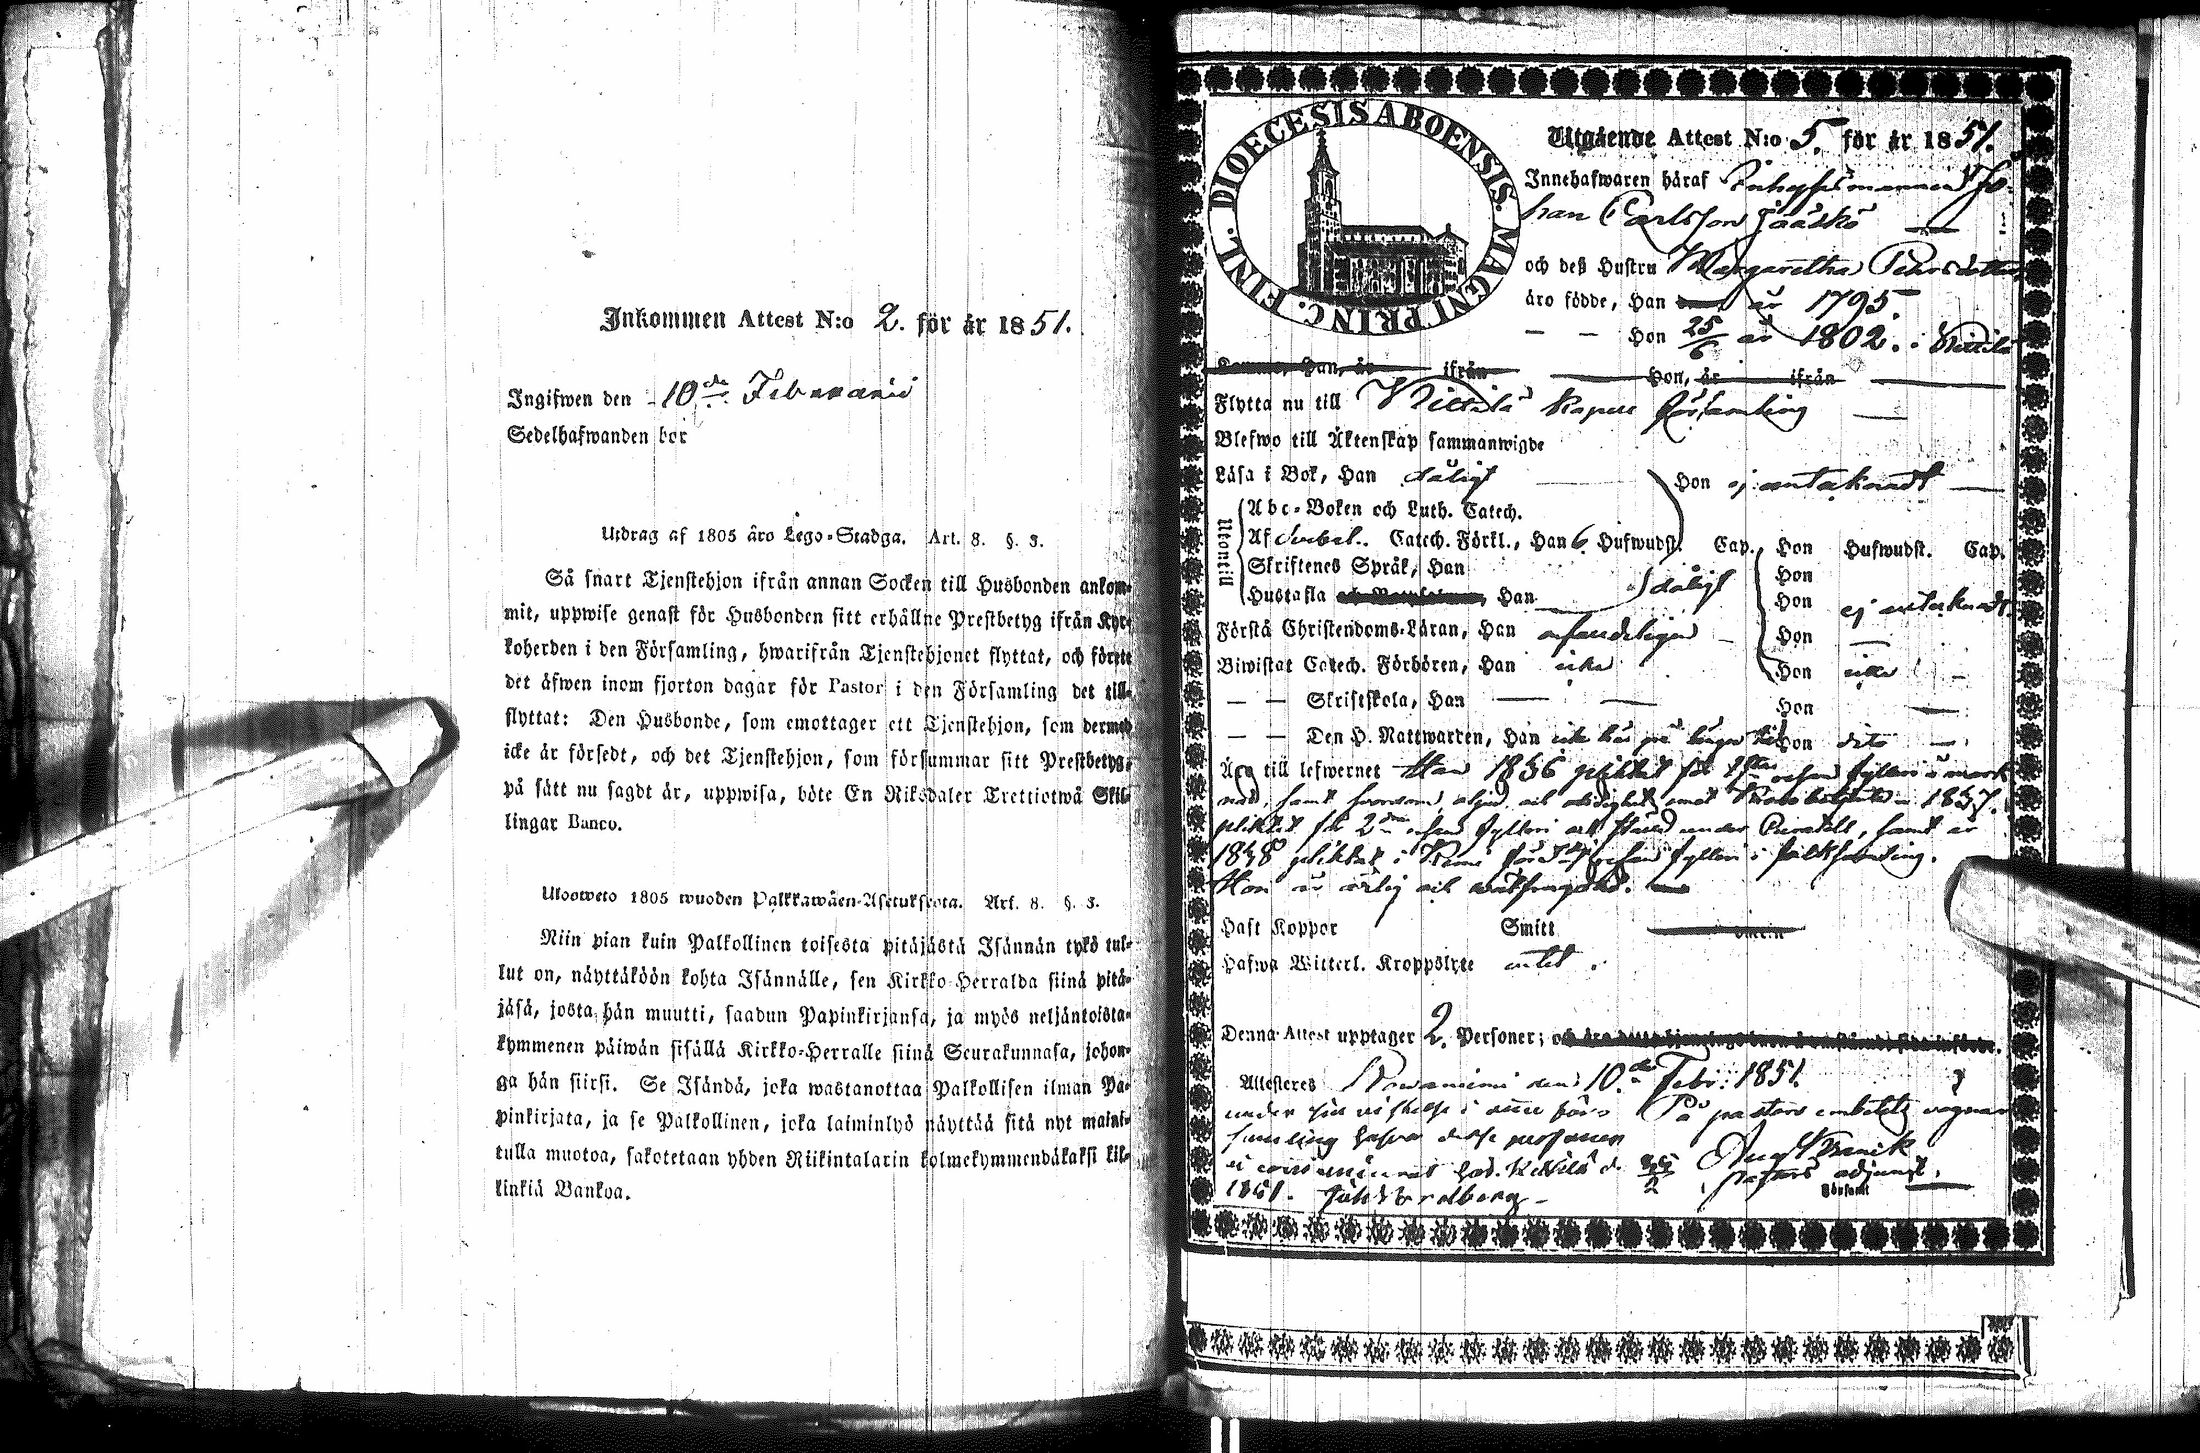 Inkommen Attest N:o 2. för år 1851.
Ingifwen den 10de Februarii
Sedelhafwanden bor
Utdrag af 1805 åro Lego-Stadga. Art. 8. §. 3.
Så snart Tjenstehjon ifrån annan Socken till Husbonden ankom-
mit, uppwise genast för Husbonden sitt erhållne Prestbetyg ifrån Kyr-
koherden i den Församling, hwarifrån Tjenstehjonet flyttat, och förete
det äfwen inom fjorton dagar för Pastor i den Församling det till-
flyttat: Den Husbonde, som emottager ett Tjenstehjon, som dermed
icke är försedt, och det Tjenstehjon, som försummar sitt Prestbetyg,
på sätt nu sagdt är, uppwisa, böte En Riksdaler Trettiotwå Skil-
lingar Banco.
Uloosweto 1805 wuoden Palkkawäen-Asetuksesta. Art. 8. §. 3.
Niin pian kuin Palkollinen toisesta pitäjästä Isännän tykö tul-
lut on, näyttäköön kohta Isännälle, sen Kirkko-Herralda siinä pitä-
jäsä, josta hän muutti, saadun Papinkirjansa, ja myös neljäntoista-
kymmenen päiwän sisällä Kirkko-Herralle siinä Seurakunnasa, johon-
ga hän siirsi. Se Isändä, joka wastanottaa Palkollisen ilman Pa-
pinkirjata, ja se Palkollinen, joka laiminlyö näyttää sitä nyt maini-
tulla muotoa, sakotetaan yhden Riikintalarin kolmekymmendäkaksi kil-
linkiä Bankoa.
DIOECESIS ABOENSIS. MAGNI PRINC. FINL.
Utgående Attest N:o 5. för år 1851.
Innehafwaren häraf Inhysesmannen Jo-
han Carlsson Jääskö
och deß Hustru Margaretha Pehrsdotter
äro födde, Han år 1795.
— — Hon 25/6 år 1802. i Kittilä
Hon, år ifrån
Flytta nu till Kittilä Kapell församling
Blefwo till Äktenskap sammanwigde
Läsa i Bok, Han dåligt Hon ej antecknadt
Utontill
Abc-Boken och Luth. Catech.
Af Svebel. Catech. Förkl., Han 6 Hufwudst. Cap. Hon Hufwudst. Cap.
Skriftenes Språk, Han Hon
Hustafla Han dåligt Hon ej antecknadt.
Förstå Christendoms-Läran, Han Hon
Biwistat Catech. Förhören, Han icke Hon icke
— — Skriftskola, Han Hon
— — Den H. Nattwarden, Han icke här på länge tid Hon dito
Äro till lefwernet Han 1836 pliktat för 1sta resan fylleri å mark-
nad, samt 1837.
pliktat för 2dra resan fylleri och samt år
1838 pliktat i Kemi för resan fylleri i folksamling.
Hon är ärlig och
Haft Koppor Smitt
Hafwa Witterl. Kroppslyte intet.
Denna Attest upptager 2. Personer;
Attesteres Rowaniemi den 10de Febr. 1851.
under sin wistelse i denna för- På pastors embetets vägnar
samling hafwa desse personer
ej communicerat Kittilä d. 1851. Joh. Nordberg
pastors adjunct.